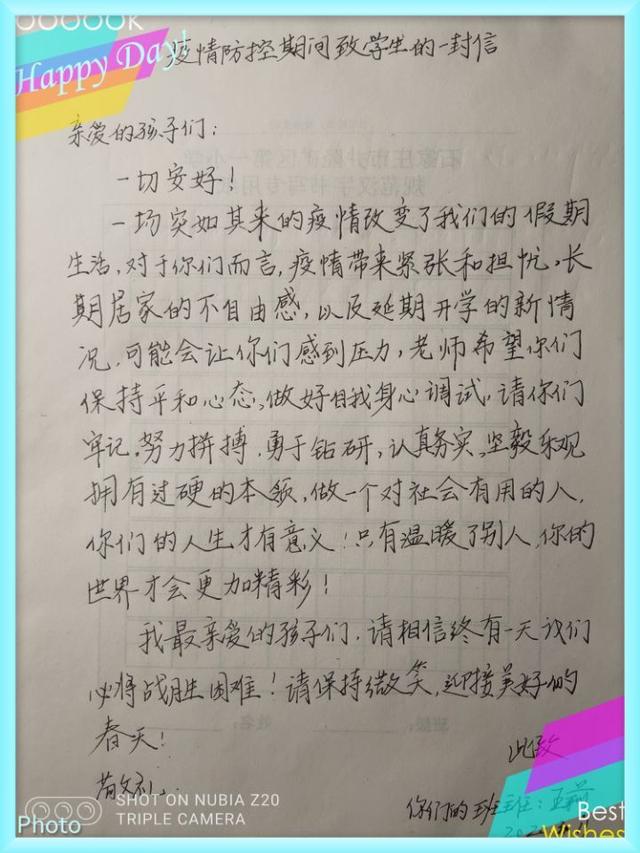 OOOOOK
Happy Day!
疫情防控期间致学生的一封信
亲爱的孩子们：
一切安好！
一场突如其来的疫情改变了我们的假期
生活，对于你们而言，疫情带来紧张和担忧，长
期居家的不自由感，以及延期开学的新情
况，可能会让你们感到压力，老师希望你们
保持平和心态，做好自我身心调试，请你们
牢记，努力拼搏，勇于钻研，认真务实，坚毅乐观
拥有过硬的本领，做一个对社会有用的人，
你们的人生才有意义！只有温暖了别人，你的
世界才会更加精彩！
我最亲爱的孩子们，请相信终有一天我们
必将战胜困难！请保持微笑，迎接美好的
春天！
此致
敬礼
你们的班班：
SHOT ON NUBIA Z20
TRIPLE CAMERA
Photo
Best
Wishes